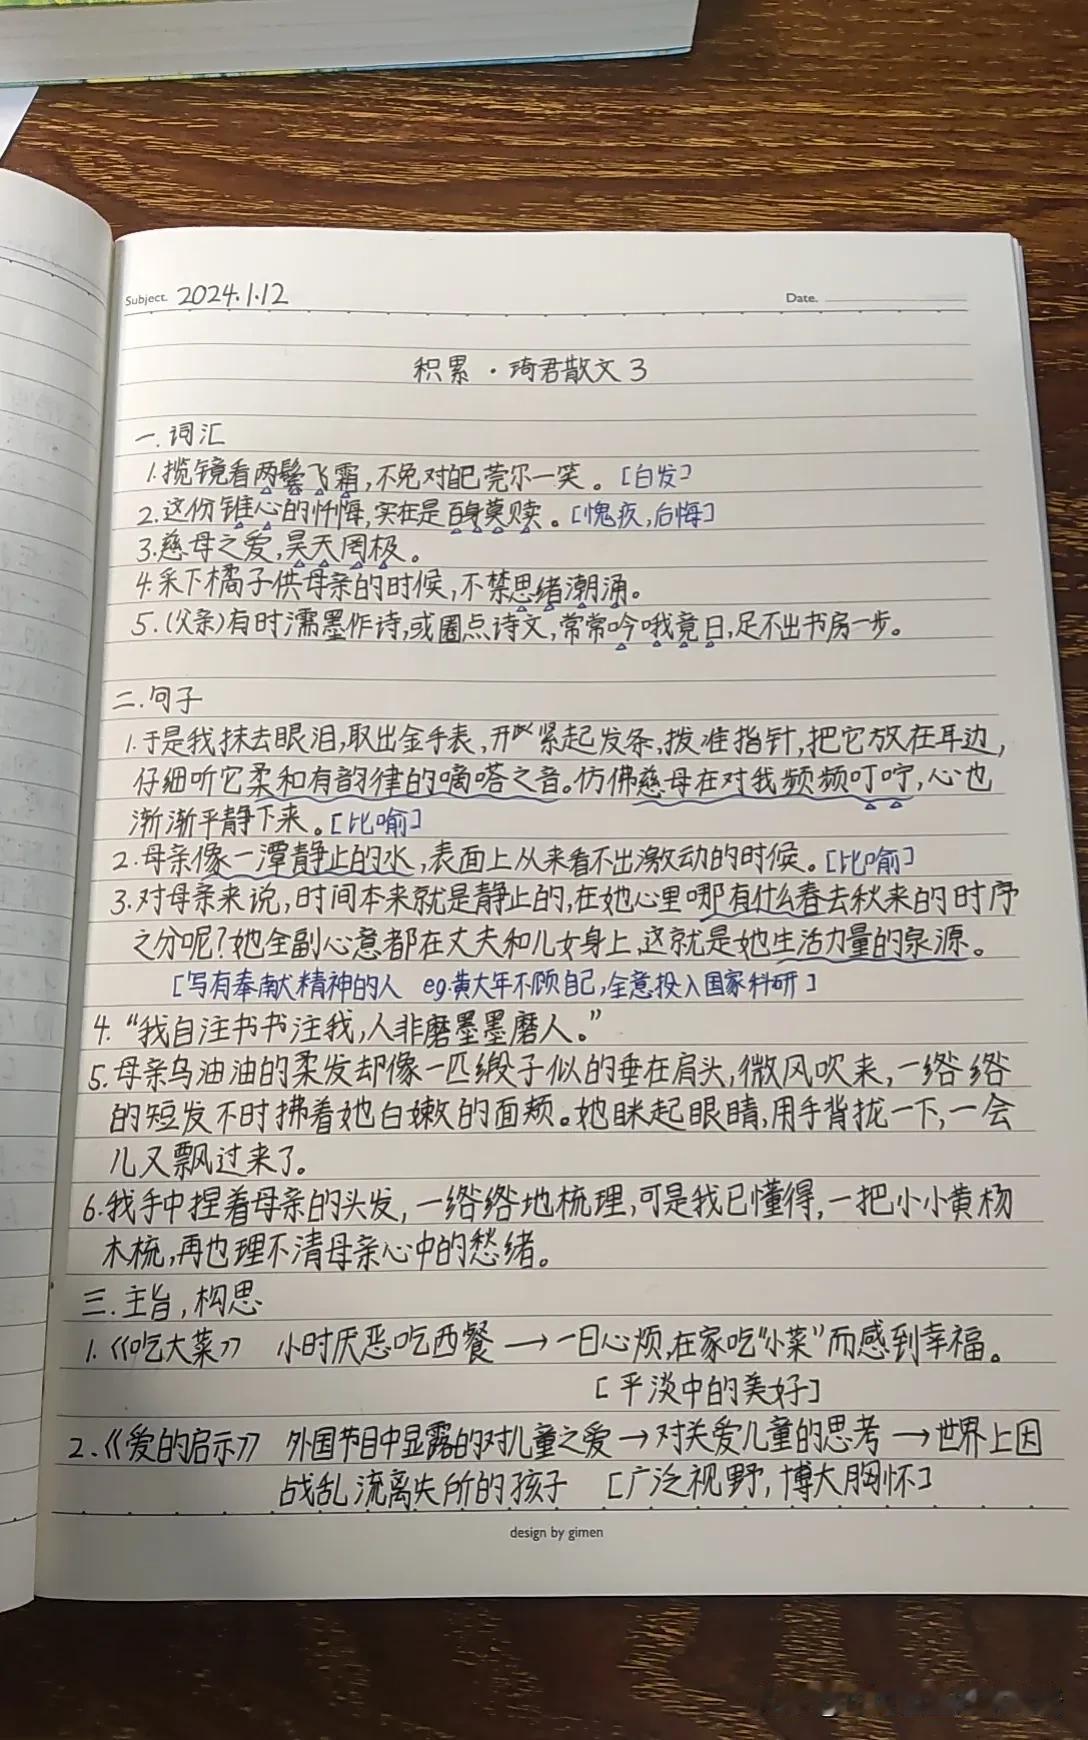 Subject. 2024.1.12
Date.
积累·琦君散文3
一.词汇
1.揽镜看两鬓飞霜,不免对自己莞尔一笑。[白发]
2.这份锥心的忏悔,实在是百身莫赎。[愧疚,后悔]
3.慈母之爱,昊天罔极。
4.采下橘子供母亲的时候,不禁思绪潮涌。
5.(父亲)有时濡墨作诗,或圈点诗文,常常吟哦竟日,足不出书房一步。
二.句子
1.于是我抹去眼泪,取出金手表,开紧起发条,拨准指针,把它放在耳边,
仔细听它柔和有韵律的嘀嗒之音。仿佛慈母在对我频频叮咛,心也
渐渐平静下来。[比喻]
2.母亲像一潭静止的水,表面上从来看不出激动的时候。[比喻]
3.对母亲来说,时间本来就是静止的,在她心里哪有什么春去秋来的时序
之分呢?她全副心意都在丈夫和儿女身上,这就是她生活力量的泉源。
[写有奉献精神的人 eg.黄大年不顾自己,全意投入国家科研]
4.“我自注书书注我,人非磨墨墨磨人。”
5.母亲乌油油的柔发却像一匹缎子似的垂在肩头,微风吹来,一绺绺
的短发不时拂着她白嫩的面颊。她眯起眼睛,用手背拢一下,一会
儿又飘过来了。
6.我手中捏着母亲的头发,一绺绺地梳理,可是我已懂得,一把小小黄杨
木梳,再也理不清母亲心中的愁绪。
三.主旨,构思
1.《吃大菜》 小时厌恶吃西餐→一日心烦,在家吃“小菜”而感到幸福。
[平淡中的美好]
2.《爱的启示》 外国节目中显露的对儿童之爱→对关爱儿童的思考→世界上因
战乱流离失所的孩子 [广泛视野,博大胸怀]
design by gimen